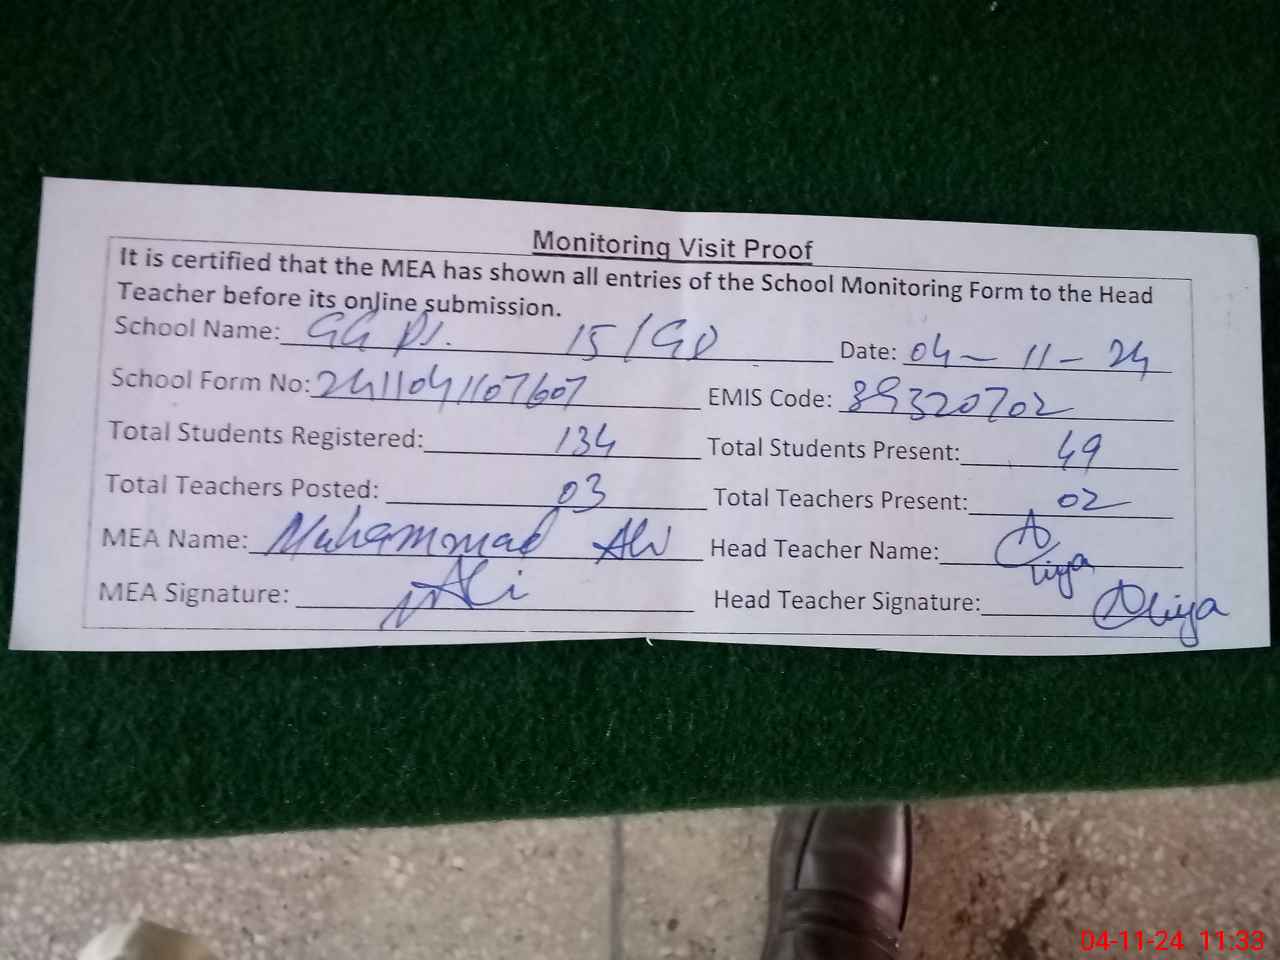 Monitoring Visit Proof
It is certified that the MEA has shown all entries of the School Monitoring Form to the Head
Teacher before its online submission.
School Name: GGPS. 15/GD Date: 04-11-24
School Form No: 2411041107607 EMIS Code: 39320702
Total Students Registered: 134 Total Students Present: 49
Total Teachers Posted: 03 Total Teachers Present: 02
MEA Name: Muhammad Ali Head Teacher Name: Aliya
MEA Signature: Ali Head Teacher Signature: Aliya
04-11-24 11:33